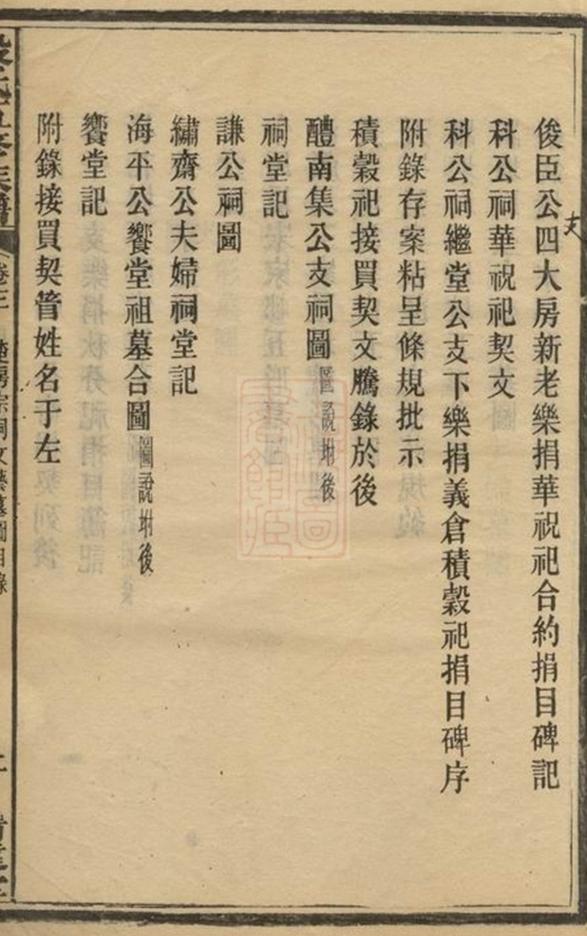 俊臣公四大房新老樂捐華祝祀合約捐目碑記
科公祠華祝祀契文
科公祠繼堂公支下樂捐義倉積穀祀捐目碑序
附錄存案粘呈條規批示
積穀祀接買契文騰錄於後
醴南集公支祠圖圖說坿後
祠堂記
謙公祠圖
繡齋公夫婦祠堂記
海平公饗堂祖墓合圖圖說坿後
饗堂記
附錄接買契管姓名于左